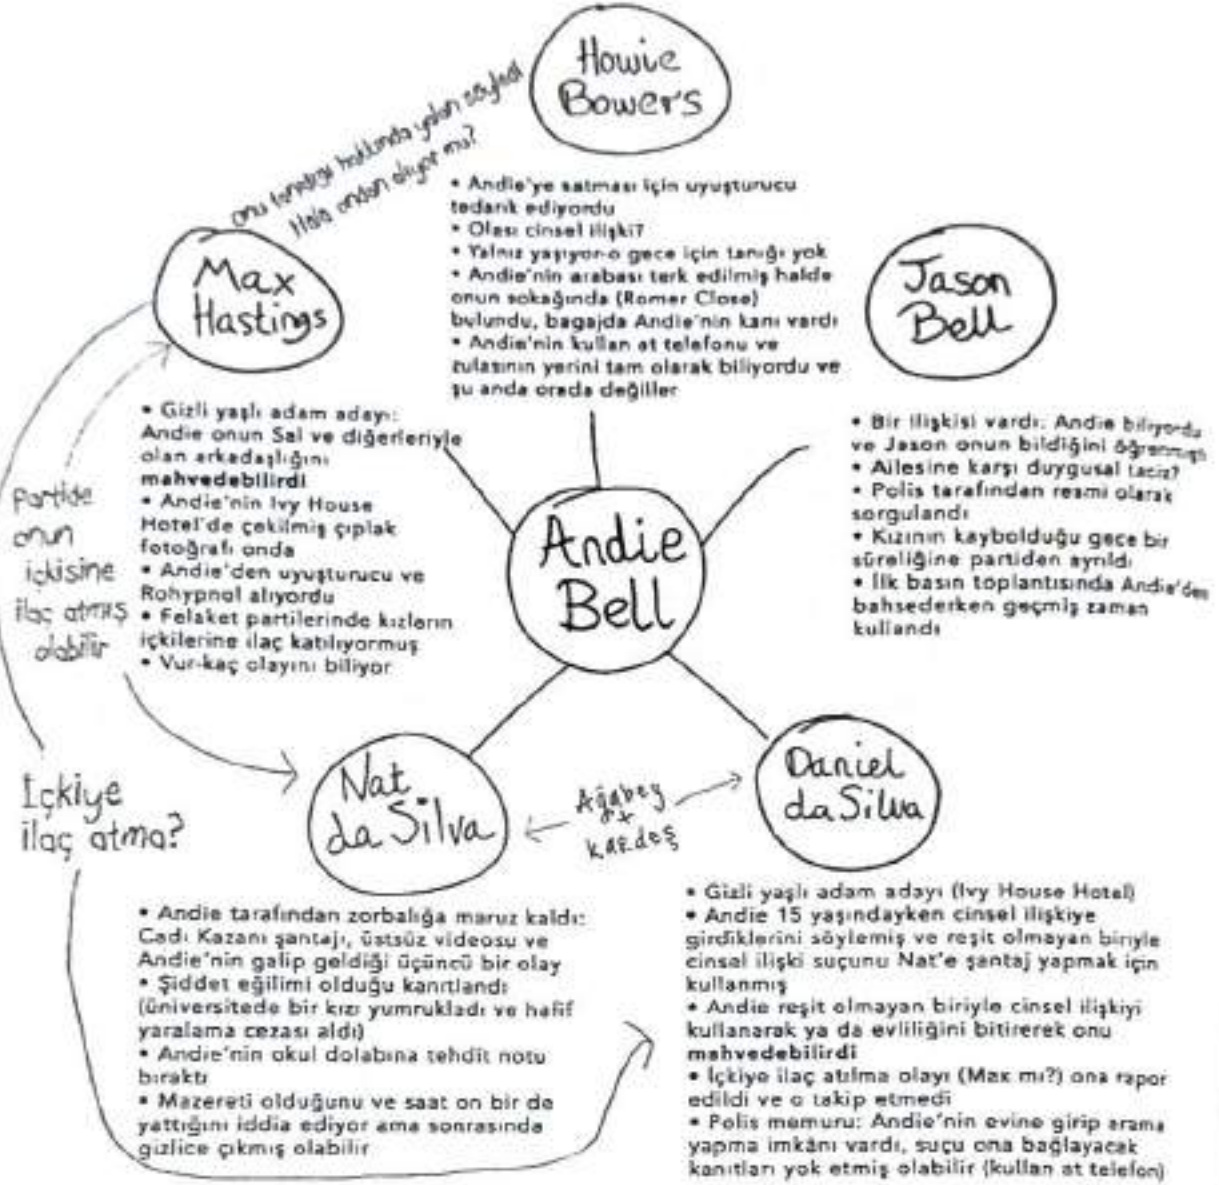 Howie
Bowers
onu tanıdığı hakkında yalan söyledi
Hala ondan alıyor mu?
• Andie'ye satması için uyuşturucu
tedarik ediyordu
• Olası cinsel ilişki?
• Yalnız yaşıyor-o gece için tanığı yok
• Andie'nin arabası terk edilmiş halde
onun sokağında (Romer Close)
bulundu, bagajda Andie'nin kanı vardı
• Andie'nin kullan at telefonu ve
zulasının yerini tam olarak biliyordu ve
şu anda orada değiller
Max
Hastings
• Gizli yaşlı adam adayı:
Andie onun Sal ve diğerleriyle
olan arkadaşlığını
mahvedebilirdi
• Andie'nin Ivy House
Hotel'de çekilmiş çıplak
fotoğrafı onda
• Andie'den uyuşturucu ve
Rohypnol alıyordu
• Felaket partilerinde kızların
içkilerine ilaç katılıyormuş
• Vur-kaç olayını biliyor
Jason
Bell
• Bir ilişkisi vardı: Andie biliyordu
ve Jason onun bildiğini öğrenmişti
• Ailesine karşı duygusal taciz?
• Polis tarafından resmi olarak
sorgulandı
• Kızının kaybolduğu gece bir
süreliğine partiden ayrıldı
• İlk basın toplantısında Andie'den
bahsederken geçmiş zaman
kullandı
Andie
Bell
Partide
onun
içkisine
ilaç atmış
olabilir
İçkiye
ilaç atma?
Nat
da Silva
Ağabey
+
kardeş
Daniel
da Silva
• Andie tarafından zorbalığa maruz kaldı:
Cadı Kazanı şantajı, üstsüz videosu ve
Andie'nin galip geldiği üçüncü bir olay
• Şiddet eğilimi olduğu kanıtlandı
(üniversitede bir kızı yumrukladı ve hafif
yaralama cezası aldı)
• Andie'nin okul dolabına tehdit notu
bıraktı
• Mazereti olduğunu ve saat on bir de
yattığını iddia ediyor ama sonrasında
gizlice çıkmış olabilir
• Gizli yaşlı adam adayı (Ivy House Hotel)
• Andie 15 yaşındayken cinsel ilişkiye
girdiklerini söylemiş ve reşit olmayan biriyle
cinsel ilişki suçunu Nat'e şantaj yapmak için
kullanmış
• Andie reşit olmayan biriyle cinsel ilişkiyi
kullanarak ya da evliliğini bitirerek onu
mahvedebilirdi
• İçkiye ilaç atılma olayı (Max mı?) ona rapor
edildi ve o takip etmedi
• Polis memuru: Andie'nin evine girip arama
yapma imkânı vardı, suçu ona bağlayacak
kanıtları yok etmiş olabilir (kullan at telefon)